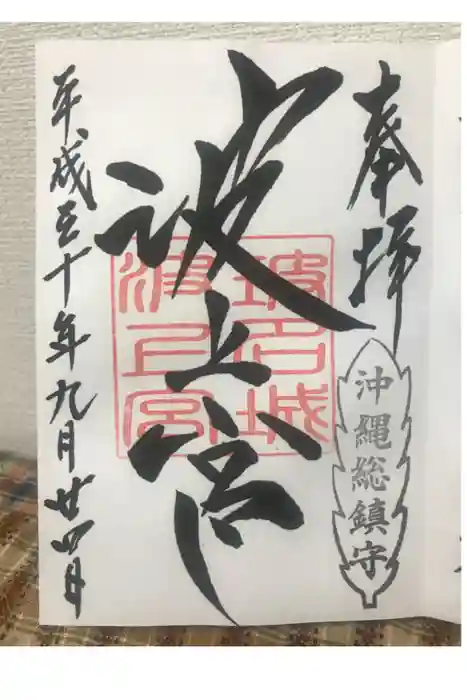 奉拝
沖縄総鎮守
波上宮
波上宮
平成三十年九月廿四日